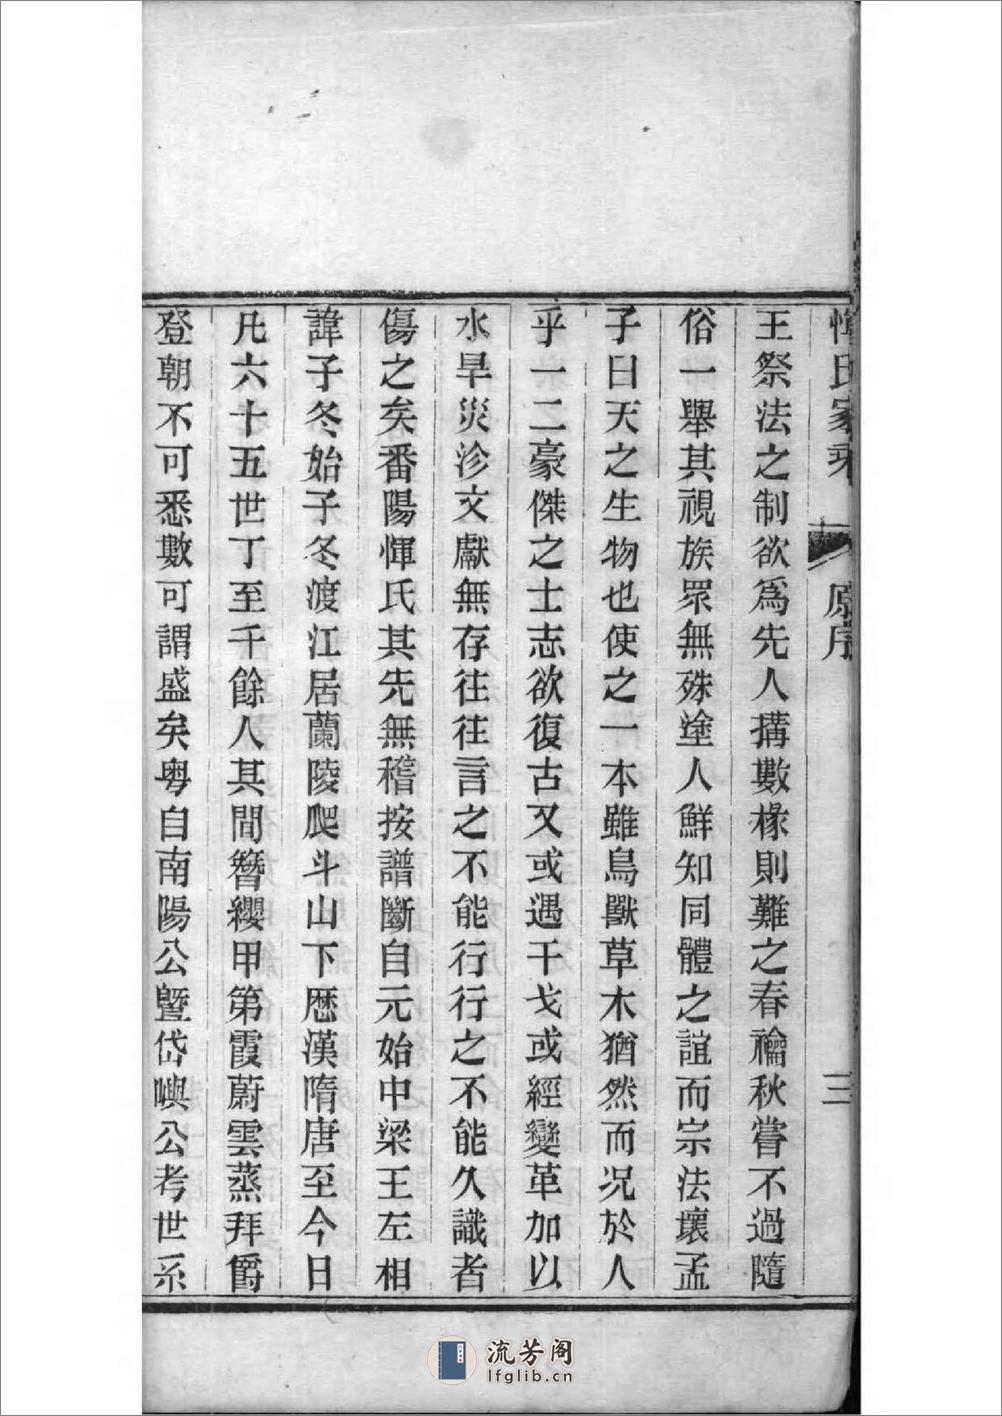 惲氏家乘
原序
三
王祭法之制欲爲先人搆數椽則難之春禴秋嘗不過隨
俗一舉其視族眾無殊塗人鮮知同體之誼而宗法壞孟
子曰天之生物也使之一本雖鳥獸草木猶然而况於人
乎一二豪傑之士志欲復古又或遇干戈或經變革加以
水旱災沴文獻無存往往言之不能行行之不能久識者
傷之矣番陽惲氏其先無稽按譜斷自元始中梁王左相
諱子冬始子冬渡江居蘭陵爬斗山下歷漢隋唐至今日
凡六十五世丁至千餘人其間簪纓甲第霞蔚雲蒸拜爵
登朝不可悉數可謂盛矣粵自南陽公暨岱嶼公考世系
流芳阁
lfglib.cn